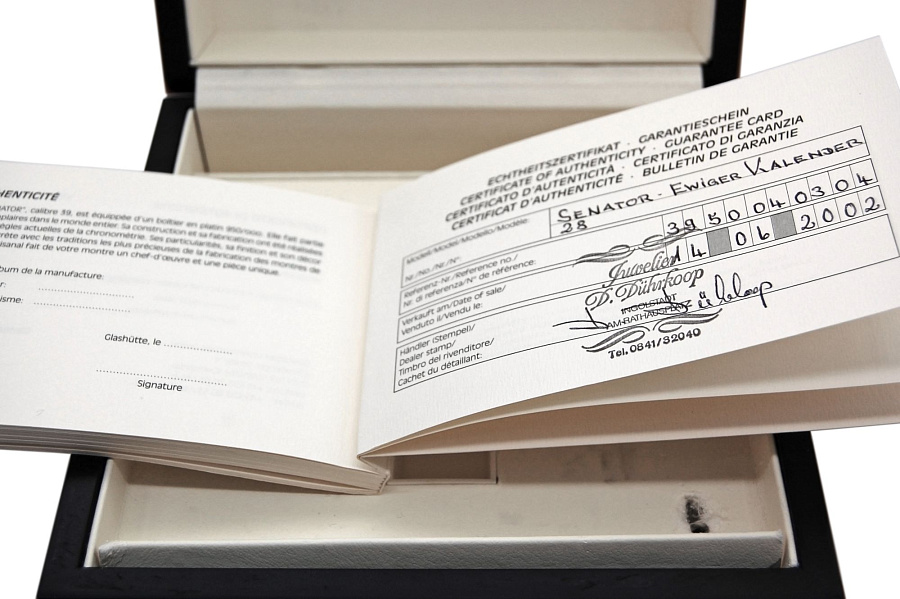 HENTICITÉ
NATOR", calibre 39, est équippée d'un boîtier en platin 950/000. Elle fait partie
plaires dans le monde entier. Sa construction et sa fabrication ont été réalisées
règles actuelles de la chronométrie. Ses particularités, sa finition et son décor
rète avec les traditions les plus précieuses de la fabrication des montres de
isanal fait de votre montre un chef-d'œuvre et une pièce unique.
lbum de la manufacture:
r:
isme:
Glashütte, le
Signature
ECHTHEITSZERTIFIKAT · GARANTIESCHEIN
CERTIFICATE OF AUTHENTICITY · GUARANTEE CARD
CERTIFICATO D'AUTENTICITÀ · CERTIFICATO DI GARANZIA
CERTIFICAT D'AUTHENTICITÉ · BULLETIN DE GARANTIE
Modell/Model/Modello/Modèle: SENATOR · EWIGER KALENDER
Nr./No./Nr./N°: 28
Referenz-Nr./Reference no./ 39500 40304
Nr. di referenza/N° de référence:
Verkauft am/Date of sale/ 14 06 2002
Venduto il/Vendu le:
Händler (Stempel)/
Dealer stamp/
Timbro del rivenditore/
Cachet du détaillant:
Juwelier
D. Dührkoop
INGOLSTADT
AM RATHAUSPLATZ
Tel. 0841/32040